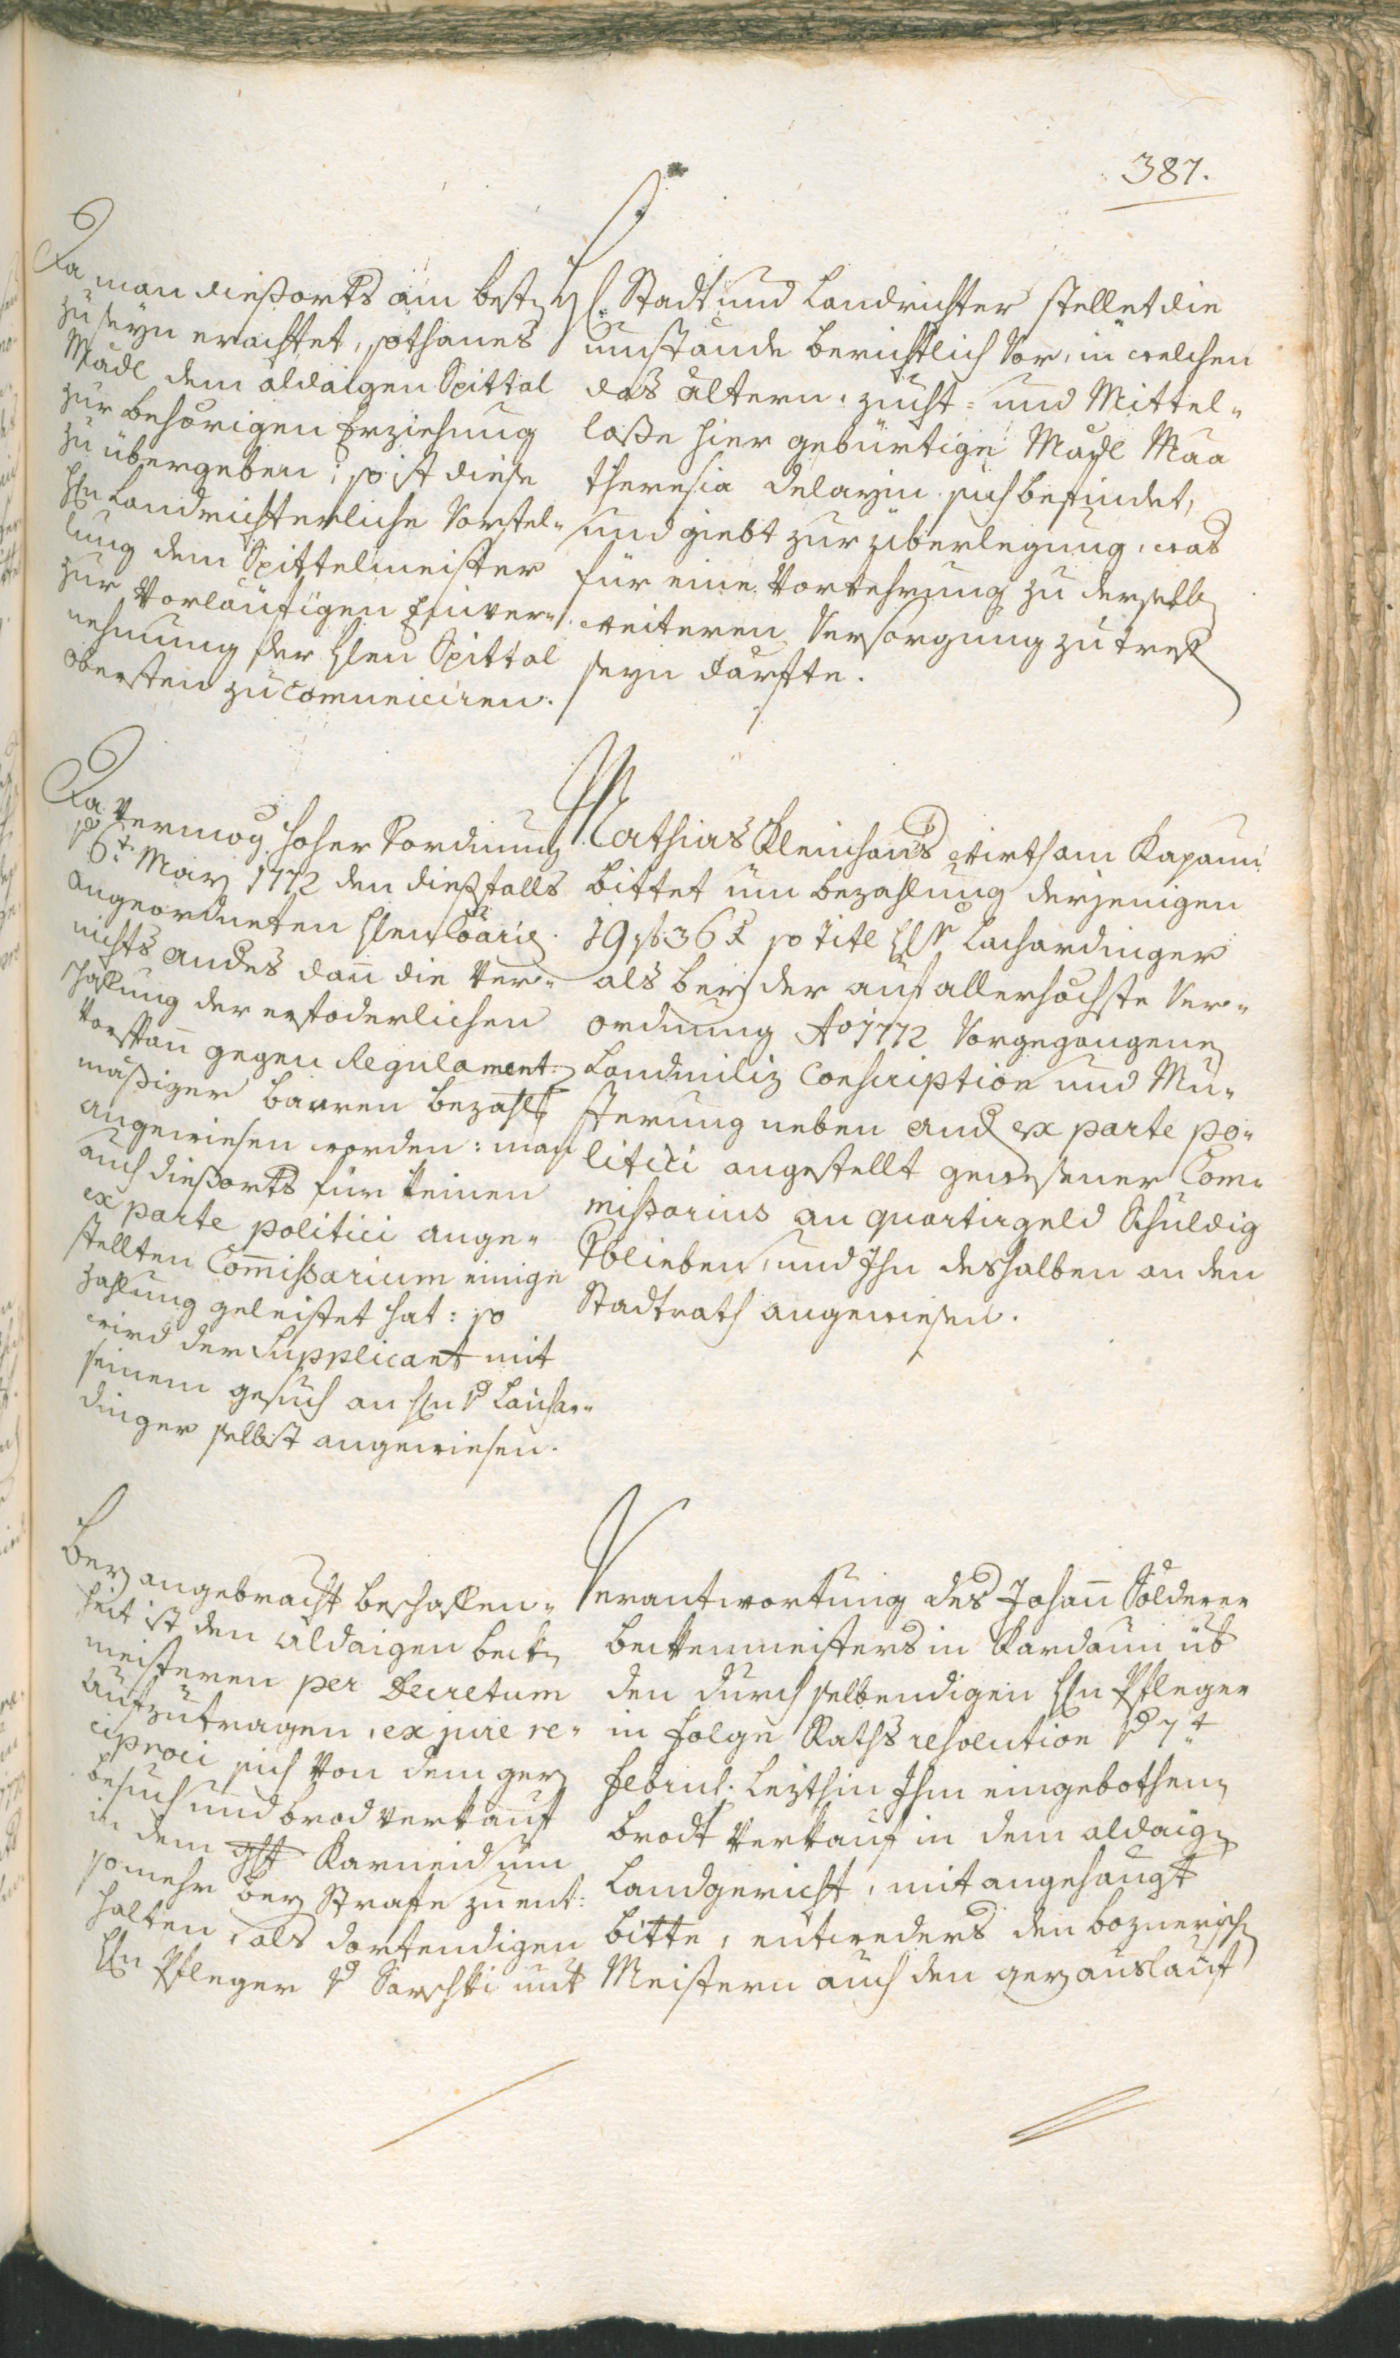 387.
Da man dießorts am besten
zu seyn erachtet, sothanes
Mädl dem aldaigen Spittal
zur behörigen Erziehung
zu übergeben; so ist diese
Hn Landrichterliche Vorstel-
lung dem Spittelmeister
zur Vorläufigen Einver-
nehmung der Hhen Spittal
obersten zu comuniciren.
H. Stadt und Landrichter stellet die
umstände berichtlich Vor, in welchen
das ältern, zucht- und Mittel-
loße hier gebürtige Mädl Maa
Theresia Delayin sich befindet,
und giebt zur überlegung, was
für eine Vorkehrung zu derselben
weiteren Versorgung zu treffen
seyn därfte.
Da vermög hoher Vordnung
6t. Marz 1772 den dießfalls
angeordneten Hhen Coarien
nichts andes dan die Ver-
schafung der erfoderlichen
Vorspan gegen Regulament-
mäßiger baaren bezahlung
angewiesen worden: man
auch dießorts für keinen
ex parte politici ange-
stellten Commissarium einige
zahlung geleistet hat: so
wird der Supplicant mit
seinem gesuch an Hn v Lachar-
dinger selbst angewiesen.
Mathias Kleinhans Wirth am Kapaun
bittet um bezahlung derjenigen
19 f 36 x so Titl Hr Lachardinger
als bey der auf allerhöchste Ver-
ordnung Ao 1772 Vorgegangenen
Landmiliz Conscription und Mu-
sterung neben and ex parte po-
litici angestellt gewesener Com-
missarius an quartirgeld Schuldig
Vblieben, und Ihn deshalben an den
Stadtrath angewiesen.
Bey angebracht beschaffen-
heit ist den aldaigen becken
meisteren per Decretum
aufzutragen, ex jure re-
ciproci sich Von dem gey
besuch und brod verkauf
in dem gst Karneid um
so mehr bey Strafe zu ent-
halten, als dortendigen
Hn Pfleger v Sarchki mit
Verantwortung des Johann Solderer
beckenmeisters in Kardaun üb
den durch selbendigen Hn Pfleger
in folge Raths resolution v 7t
Februl. lezthin Ihm eingebothenen
brodt verkauf in dem aldaigen
Landgericht, mit angehängt
bitte, entweders den boznerischen
Meistern auch den gey auslauf